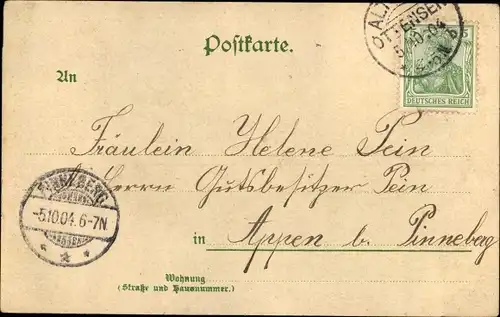 ALT
OTTENSEN
5.10.04
Postkarte.
5
DEUTSCHES REICH
An
Fräulein Helene Pein
Herrn Gutsbesitzer Pein
PINNEBERG
-5.10.04.6-7N
in Appen b. Pinneberg
Wohnung
(Straße und Hausnummer.)